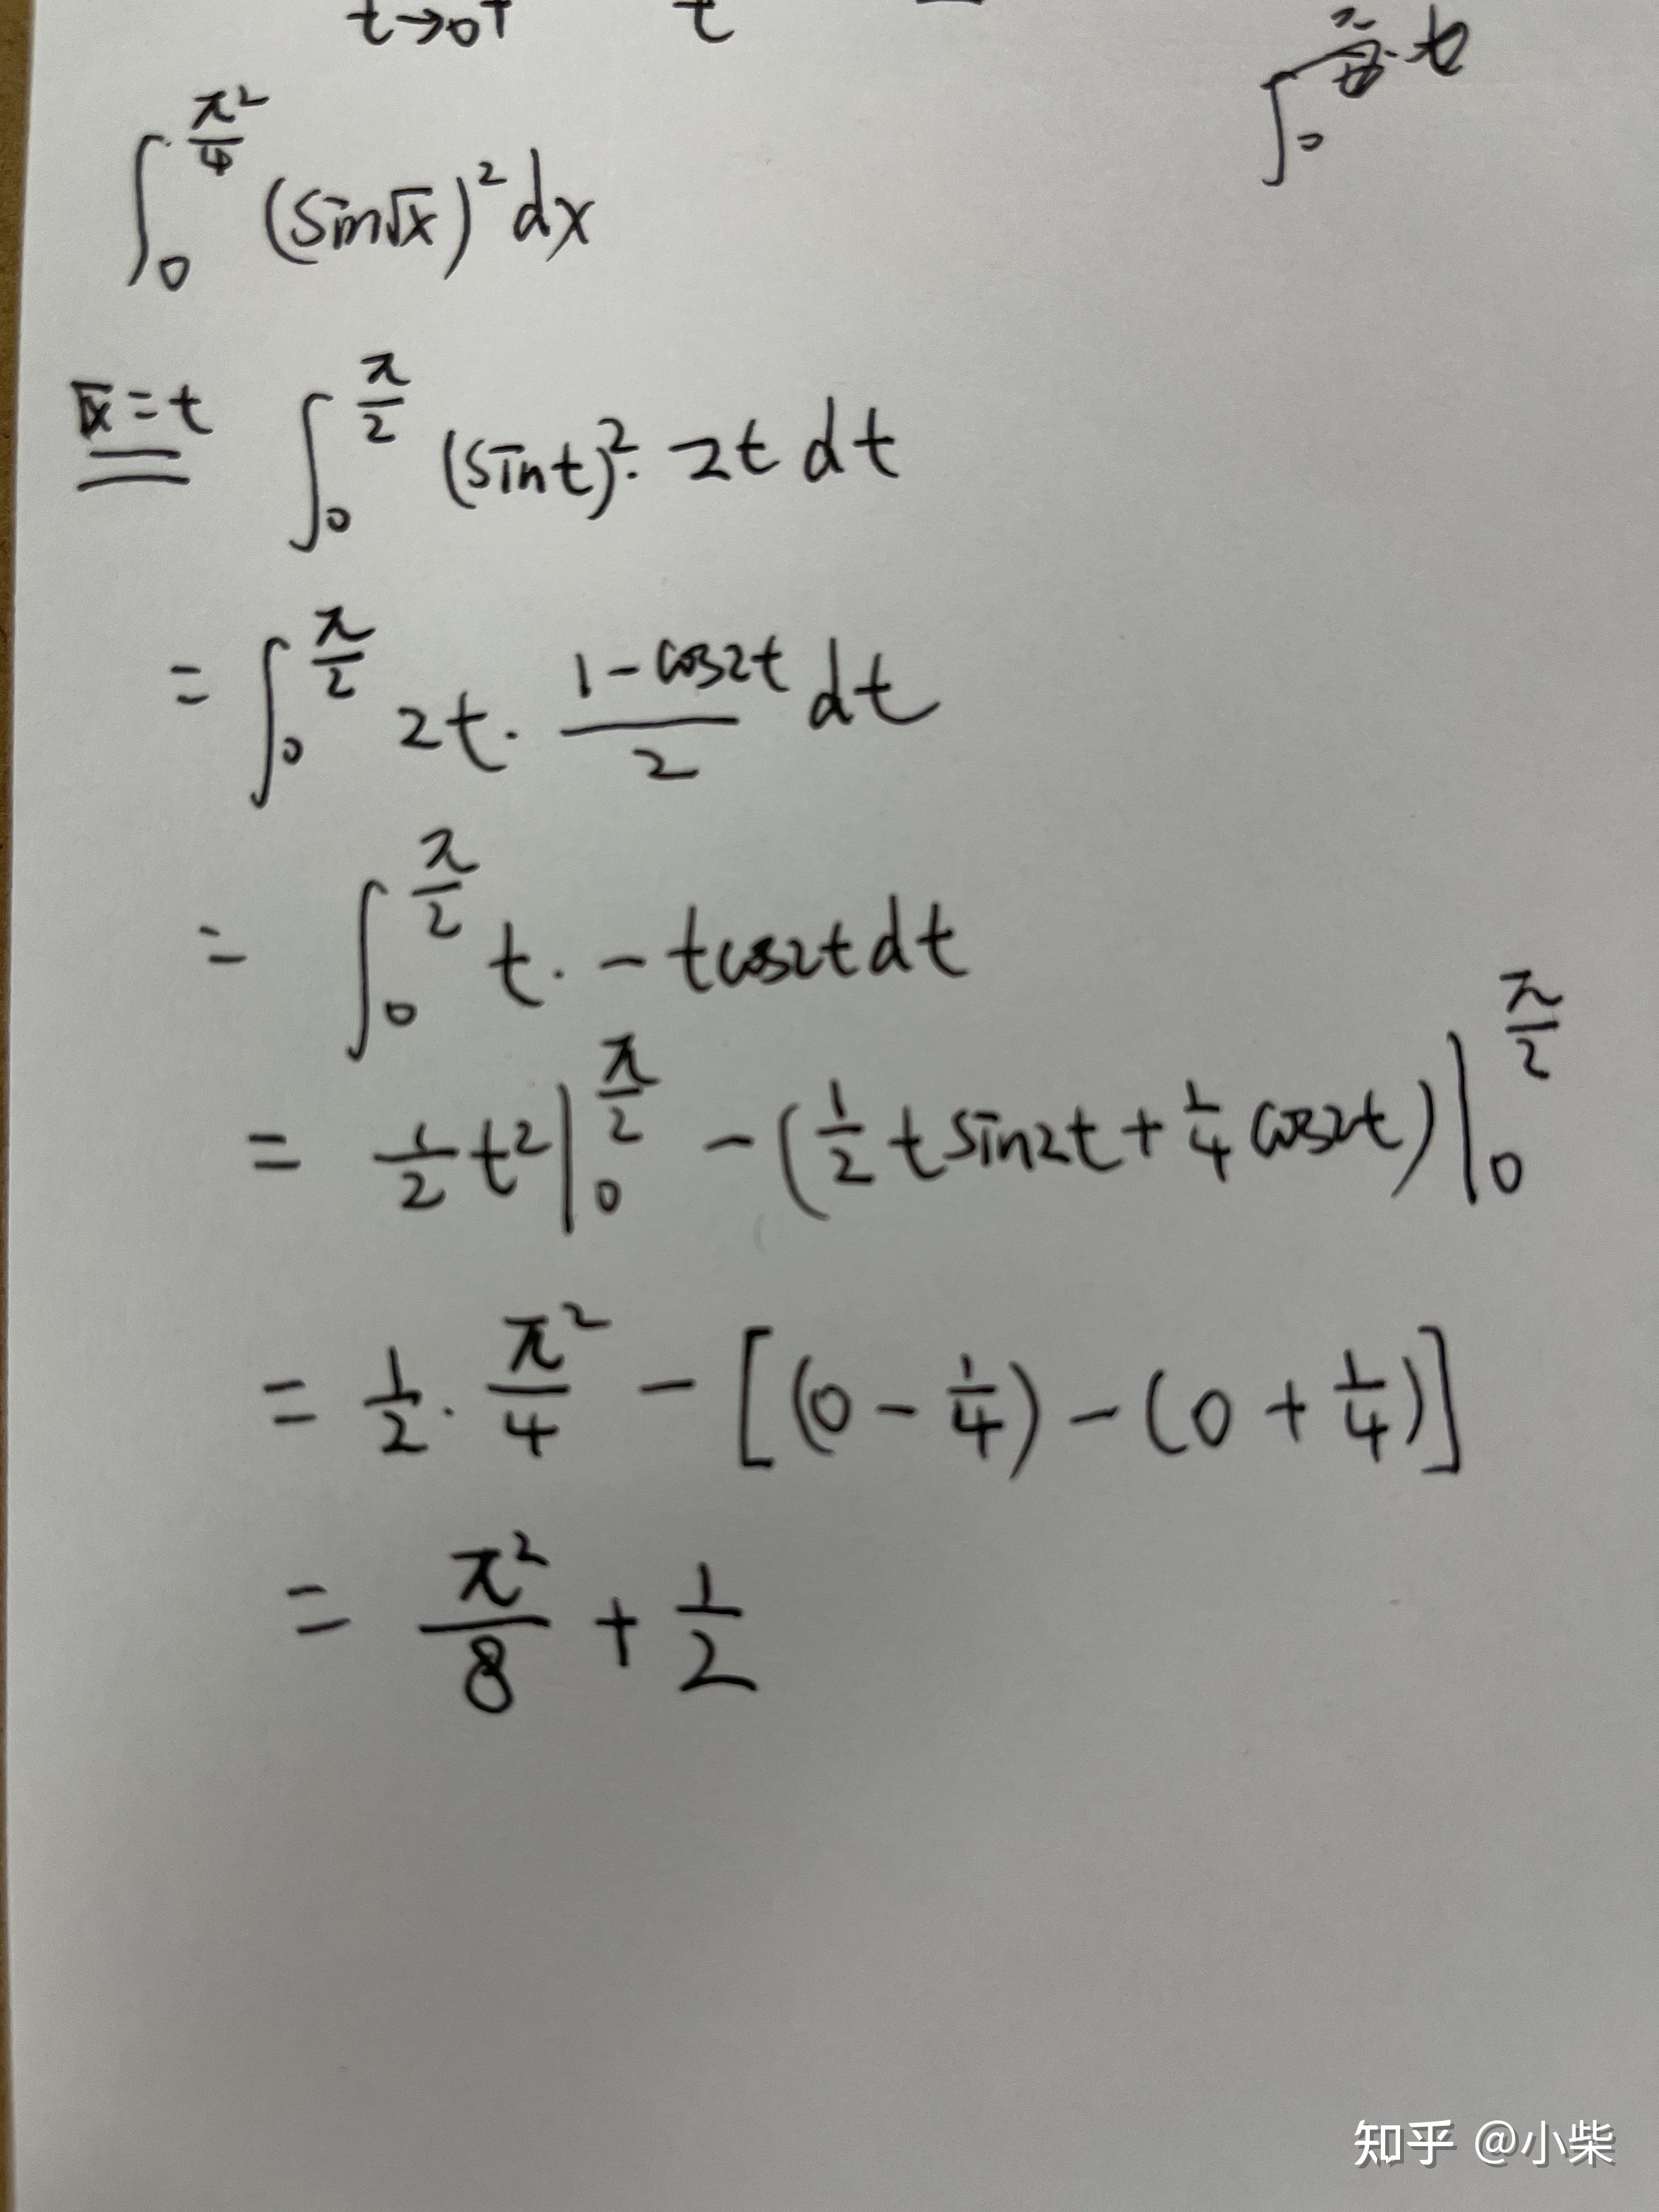 t→0+ t
∫_0^{π²/4} (sin√x)² dx
√x = t ∫_0^{π/2} (sint)²· 2t dt
= ∫_0^{π/2} 2t · (1-cos2t)/2 dt
= ∫_0^{π/2} t · - tcos2t dt
= 1/2 t² |_0^{π/2} - (1/2 t sin2t + 1/4 cos2t) |_0^{π/2}
= 1/2 · π²/4 - [(0 - 1/4) - (0 + 1/4)]
= π²/8 + 1/2
知乎 @小柴